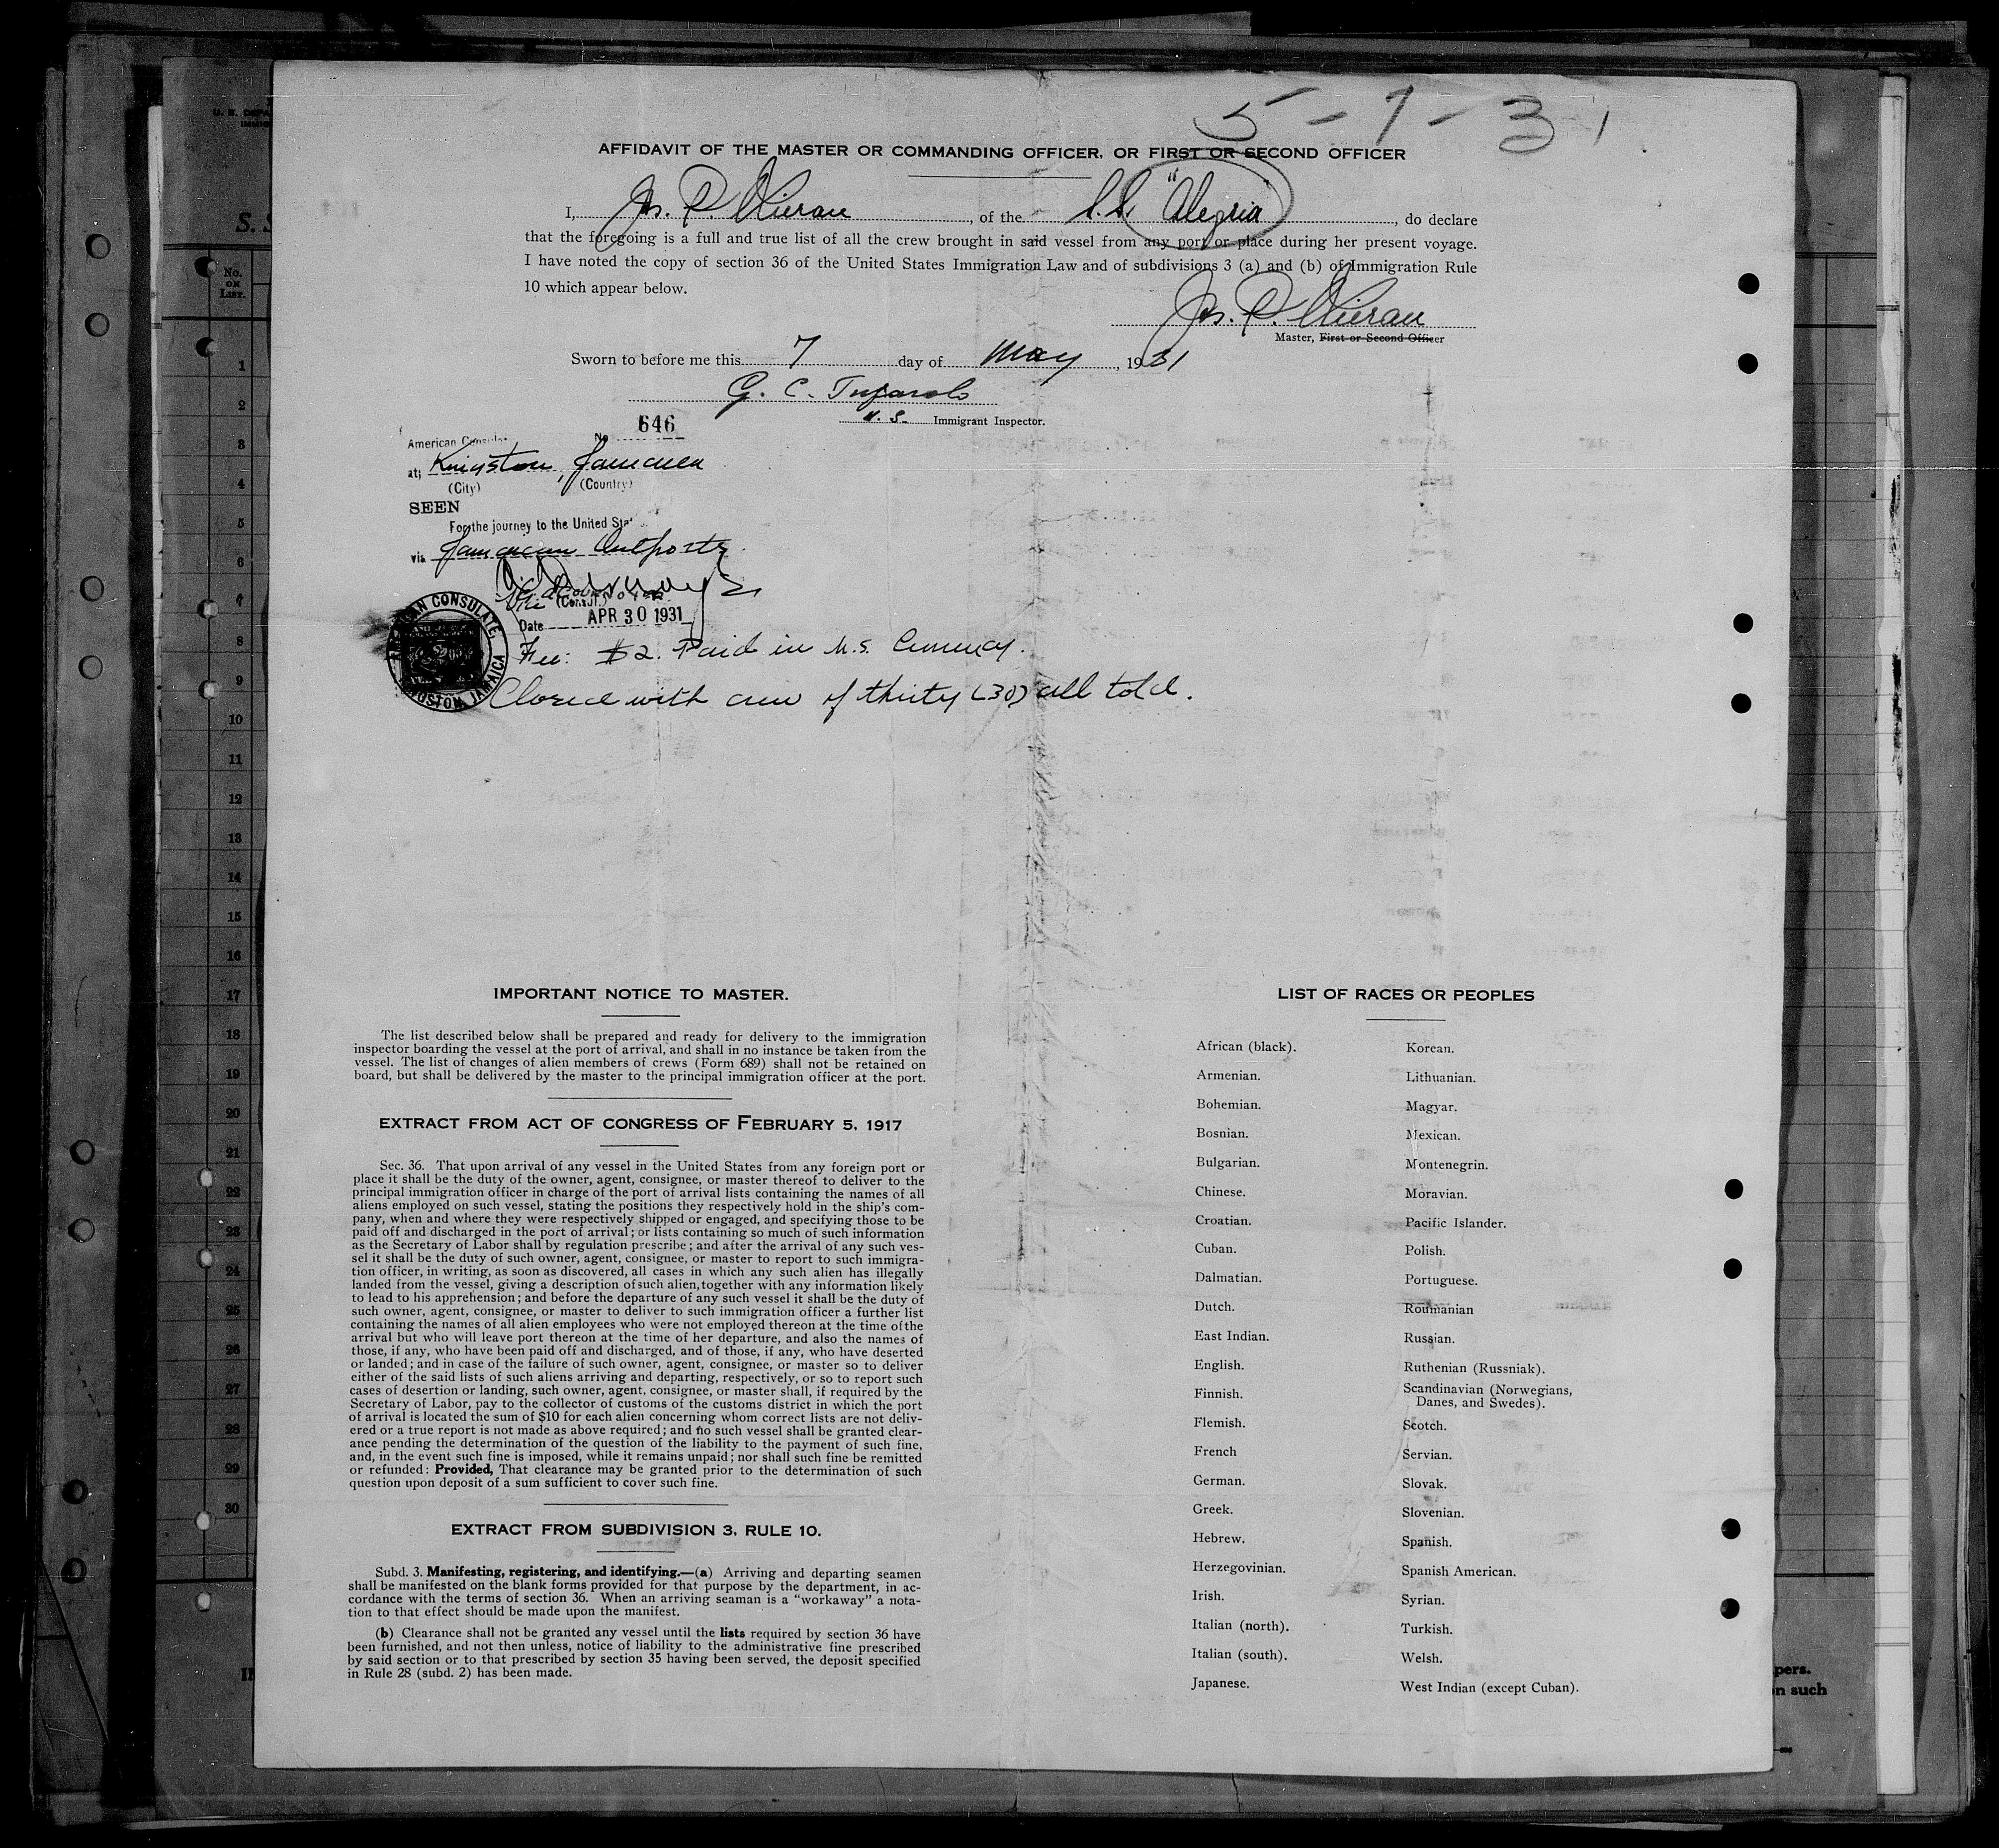 5-7-31
AFFIDAVIT OF THE MASTER OR COMMANDING OFFICER, OR FIRST OR SECOND OFFICER
I, Jos. P. , of the S.S. "Alegria", do declare
that the foregoing is a full and true list of all the crew brought in said vessel from any port or place during her present voyage.
I have noted the copy of section 36 of the United States Immigration Law and of subdivisions 3 (a) and (b) of Immigration Rule
10 which appear below.
Jos. P.
Master, First or Second Officer
Sworn to before me this 7 day of May, 1931
G. C.
U. S. Immigrant Inspector.
American Consular No 646
at Kingston, Jamaica
(City) (Country)
SEEN
For the journey to the United Sta
via Jamaican Outports
Vice (Consul)
Date APR 30 1931
AMERICAN CONSULATE, KINGSTON, JAMAICA
Fee: $2. Paid in U.S. Currency.
Closed with crew of thirty (30) all told.
U. S. DEPA
IMMIG
S. S
No.
ON
LIST.
1
2
3
4
5
6
7
8
9
10
11
12
13
14
15
16
17
18
19
20
21
22
23
24
25
26
27
28
29
30
IMPORTANT NOTICE TO MASTER.
The list described below shall be prepared and ready for delivery to the immigration
inspector boarding the vessel at the port of arrival, and shall in no instance be taken from the
vessel. The list of changes of alien members of crews (Form 689) shall not be retained on
board, but shall be delivered by the master to the principal immigration officer at the port.
EXTRACT FROM ACT OF CONGRESS OF FEBRUARY 5, 1917
Sec. 36. That upon arrival of any vessel in the United States from any foreign port or
place it shall be the duty of the owner, agent, consignee, or master thereof to deliver to the
principal immigration officer in charge of the port of arrival lists containing the names of all
aliens employed on such vessel, stating the positions they respectively hold in the ship's com-
pany, when and where they were respectively shipped or engaged, and specifying those to be
paid off and discharged in the port of arrival; or lists containing so much of such information
as the Secretary of Labor shall by regulation prescribe; and after the arrival of any such ves-
sel it shall be the duty of such owner, agent, consignee, or master to report to such immigra-
tion officer, in writing, as soon as discovered, all cases in which any such alien has illegally
landed from the vessel, giving a description of such alien, together with any information likely
to lead to his apprehension; and before the departure of any such vessel it shall be the duty of
such owner, agent, consignee, or master to deliver to such immigration officer a further list
containing the names of all alien employees who were not employed thereon at the time of the
arrival but who will leave port thereon at the time of her departure, and also the names of
those, if any, who have been paid off and discharged, and of those, if any, who have deserted
or landed; and in case of the failure of such owner, agent, consignee, or master so to deliver
either of the said lists of such aliens arriving and departing, respectively, or so to report such
cases of desertion or landing, such owner, agent, consignee, or master shall, if required by the
Secretary of Labor, pay to the collector of customs of the customs district in which the port
of arrival is located the sum of $10 for each alien concerning whom correct lists are not deliv-
ered or a true report is not made as above required; and no such vessel shall be granted clear-
ance pending the determination of the question of the liability to the payment of such fine,
and, in the event such fine is imposed, while it remains unpaid; nor shall such fine be remitted
or refunded: Provided, That clearance may be granted prior to the determination of such
question upon deposit of a sum sufficient to cover such fine.
EXTRACT FROM SUBDIVISION 3, RULE 10.
Subd. 3. Manifesting, registering, and identifying.—(a) Arriving and departing seamen
shall be manifested on the blank forms provided for that purpose by the department, in ac-
cordance with the terms of section 36. When an arriving seaman is a "workaway" a nota-
tion to that effect should be made upon the manifest.
(b) Clearance shall not be granted any vessel until the lists required by section 36 have
been furnished, and not then unless, notice of liability to the administrative fine prescribed
by said section or to that prescribed by section 35 having been served, the deposit specified
in Rule 28 (subd. 2) has been made.
LIST OF RACES OR PEOPLES
African (black).
Armenian.
Bohemian.
Bosnian.
Bulgarian.
Chinese.
Croatian.
Cuban.
Dalmatian.
Dutch.
East Indian.
English.
Finnish.
Flemish.
French
German.
Greek.
Hebrew.
Herzegovinian.
Irish.
Italian (north).
Italian (south).
Japanese.
Korean.
Lithuanian.
Magyar.
Mexican.
Montenegrin.
Moravian.
Pacific Islander.
Polish.
Portuguese.
Roumanian
Russian.
Ruthenian (Russniak).
Scandinavian (Norwegians,
Danes, and Swedes).
Scotch.
Servian.
Slovak.
Slovenian.
Spanish.
Spanish American.
Syrian.
Turkish.
Welsh.
West Indian (except Cuban).
pers.
n such